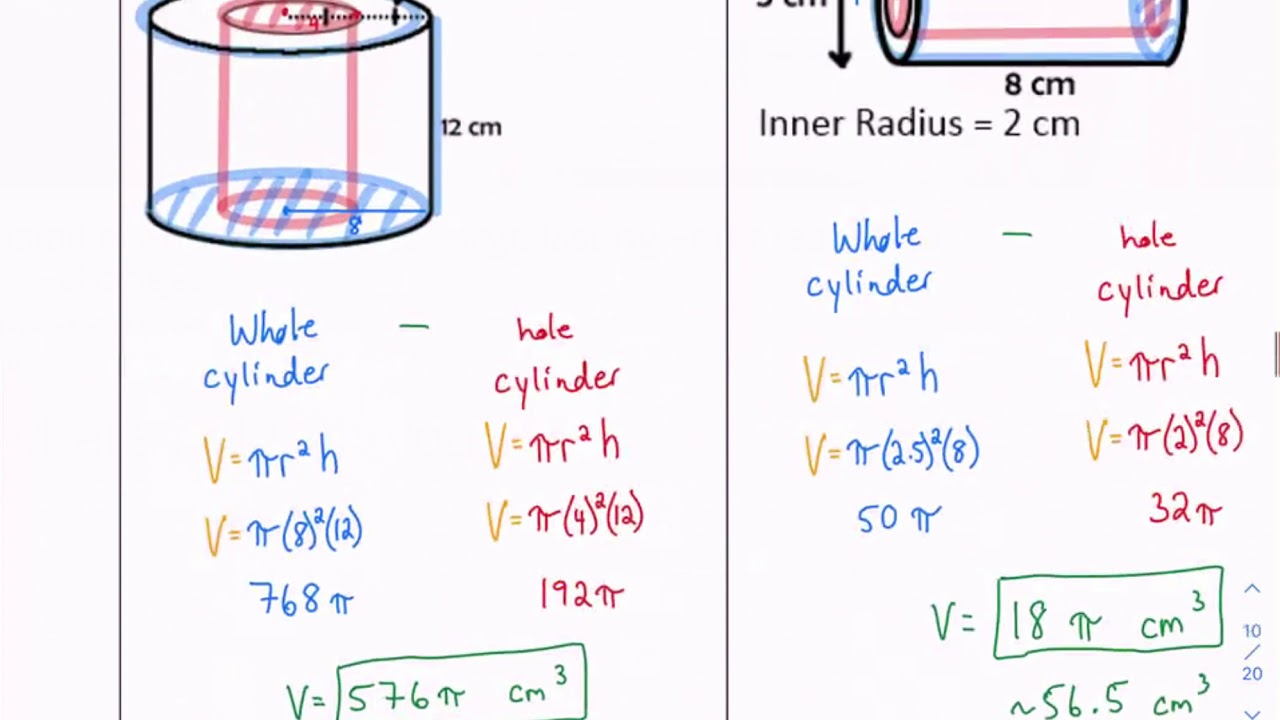 4
12 cm
8
Whole — hole
cylinder cylinder
V=πr²h V=πr²h
V=π(8)²(12) V=π(4)²(12)
768π 192π
V= 576π cm³
cm
8 cm
Inner Radius = 2 cm
Whole — hole
cylinder cylinder
V=πr²h V=πr²h
V=π(2.5)²(8) V=π(2)²(8)
50π 32π
V= 18 π cm³
~56.5 cm³
10
/
20